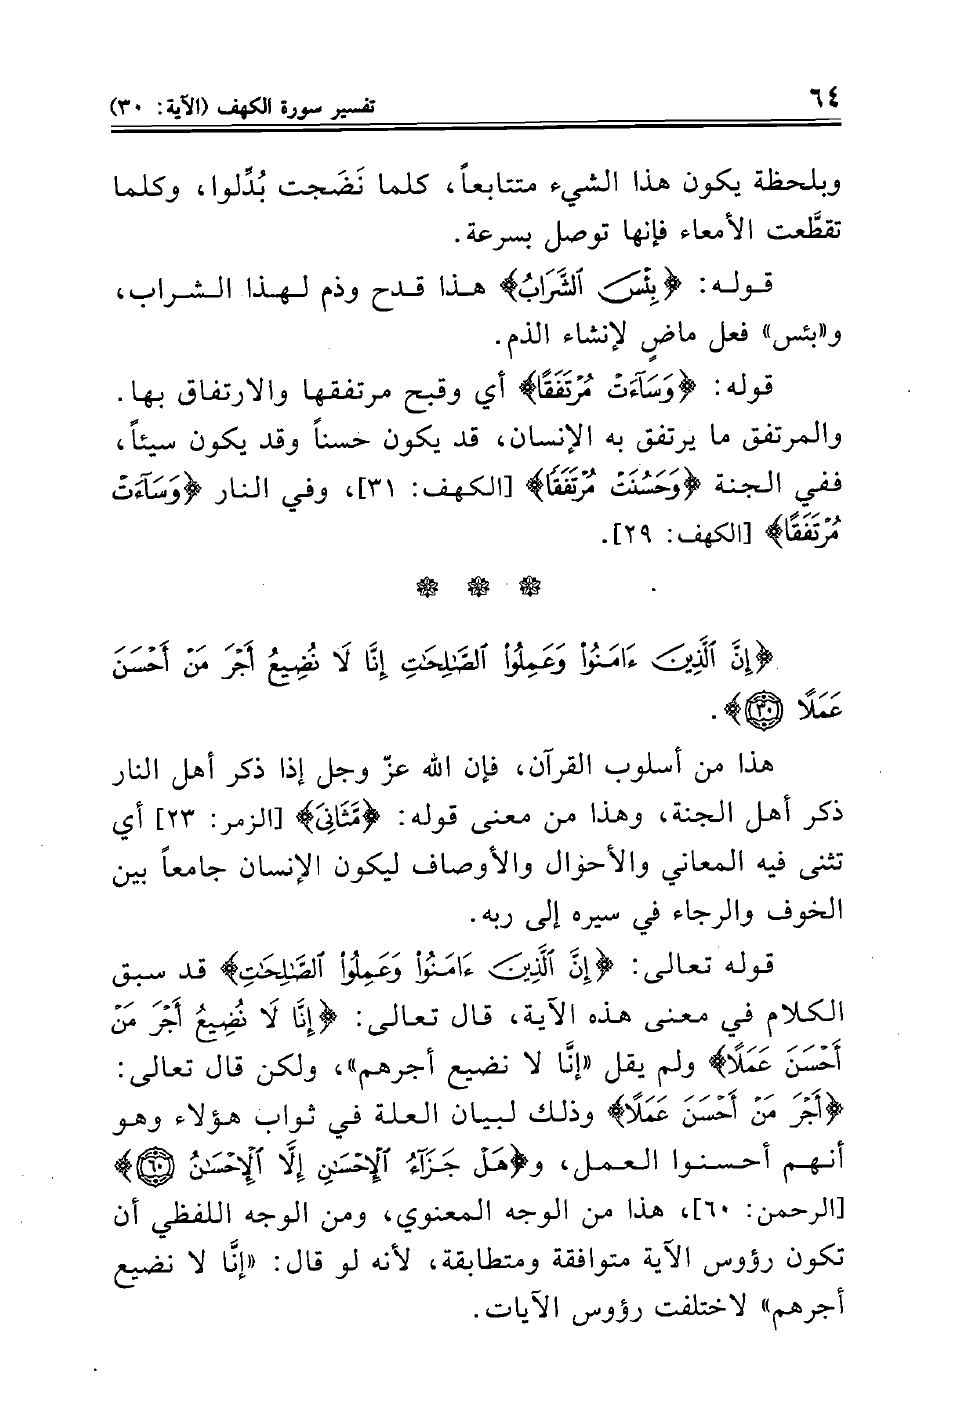 ٦٤
تفسير سورة الكهف (الآية: ٣٠)
وبلحظة يكون هذا الشيء متتابعاً، كلما نَضَجت بُدِّلوا، وكلما
تقطَّعت الأمعاء فإنها توصل بسرعة.
قوله: ﴿بِئْسَ ٱلشَّرَابُ﴾ هذا قدح وذم لهذا الشراب،
و«بئس» فعل ماضٍ لإنشاء الذم.
قوله: ﴿وَسَآءَتْ مُرْتَفَقًا﴾ أي وقبح مرتفقها والارتفاق بها.
والمرتفق ما يرتفق به الإنسان، قد يكون حسناً وقد يكون سيئاً،
ففي الجنة ﴿وَحَسُنَتْ مُرْتَفَقًا﴾ [الكهف: ٣١]، وفي النار ﴿وَسَآءَتْ
مُرْتَفَقًا﴾ [الكهف: ٢٩].
﴿إِنَّ ٱلَّذِينَ ءَامَنُوا۟ وَعَمِلُوا۟ ٱلصَّـٰلِحَـٰتِ إِنَّا لَا نُضِيعُ أَجْرَ مَنْ أَحْسَنَ
عَمَلًا ٣٠﴾.
هذا من أسلوب القرآن، فإن الله عزّ وجل إذا ذكر أهل النار
ذكر أهل الجنة، وهذا من معنى قوله: ﴿مَّثَانِىَ﴾ [الزمر: ٢٣] أي
تثنى فيه المعاني والأحوال والأوصاف ليكون الإنسان جامعاً بين
الخوف والرجاء في سيره إلى ربه.
قوله تعالى: ﴿إِنَّ ٱلَّذِينَ ءَامَنُوا۟ وَعَمِلُوا۟ ٱلصَّـٰلِحَـٰتِ﴾ قد سبق
الكلام في معنى هذه الآية، قال تعالى: ﴿إِنَّا لَا نُضِيعُ أَجْرَ مَنْ
أَحْسَنَ عَمَلًا﴾ ولم يقل «إنَّا لا نضيع أجرهم»، ولكن قال تعالى:
﴿أَجْرَ مَنْ أَحْسَنَ عَمَلًا﴾ وذلك لبيان العلة في ثواب هؤلاء وهو
أنهم أحسنوا العمل، و﴿هَلْ جَزَآءُ ٱلْإِحْسَـٰنِ إِلَّا ٱلْإِحْسَـٰنُ ٦٠﴾
[الرحمن: ٦٠]، هذا من الوجه المعنوي، ومن الوجه اللفظي أن
تكون رؤوس الآية متوافقة ومتطابقة، لأنه لو قال: «إنَّا لا نضيع
أجرهم» لاختلفت رؤوس الآيات.